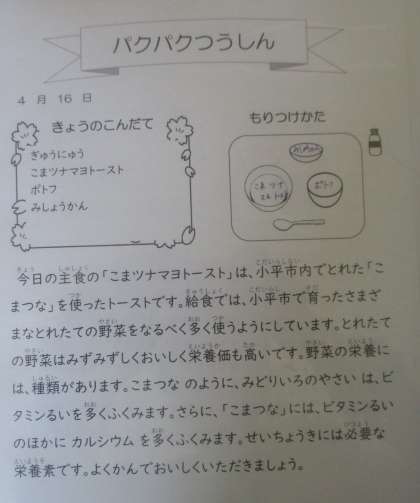 パクパクつうしん
4 月 16 日
きょうのこんだて
ぎゅうにゅう
こまツナマヨトースト
ポトフ
みしょうかん
もりつけかた
みしょうかん
こまツナ
マヨトースト
ポトフ
今日の主食の「こまツナマヨトースト」は、小平市内でとれた「こ
まつな」を使ったトーストです。給食では、小平市で育ったさまざ
まなとれたての野菜をなるべく多く使うようにしています。とれたて
の野菜はみずみずしくおいしく栄養価も高いです。野菜の栄養に
は、種類があります。こまつな のように、みどりいろのやさい は、ビ
タミンるいを多くふくみます。さらに、「こまつな」には、ビタミンるい
のほかに カルシウム を多くふくみます。せいちょうきには必要な
栄養素です。よくかんでおいしくいただきましょう。